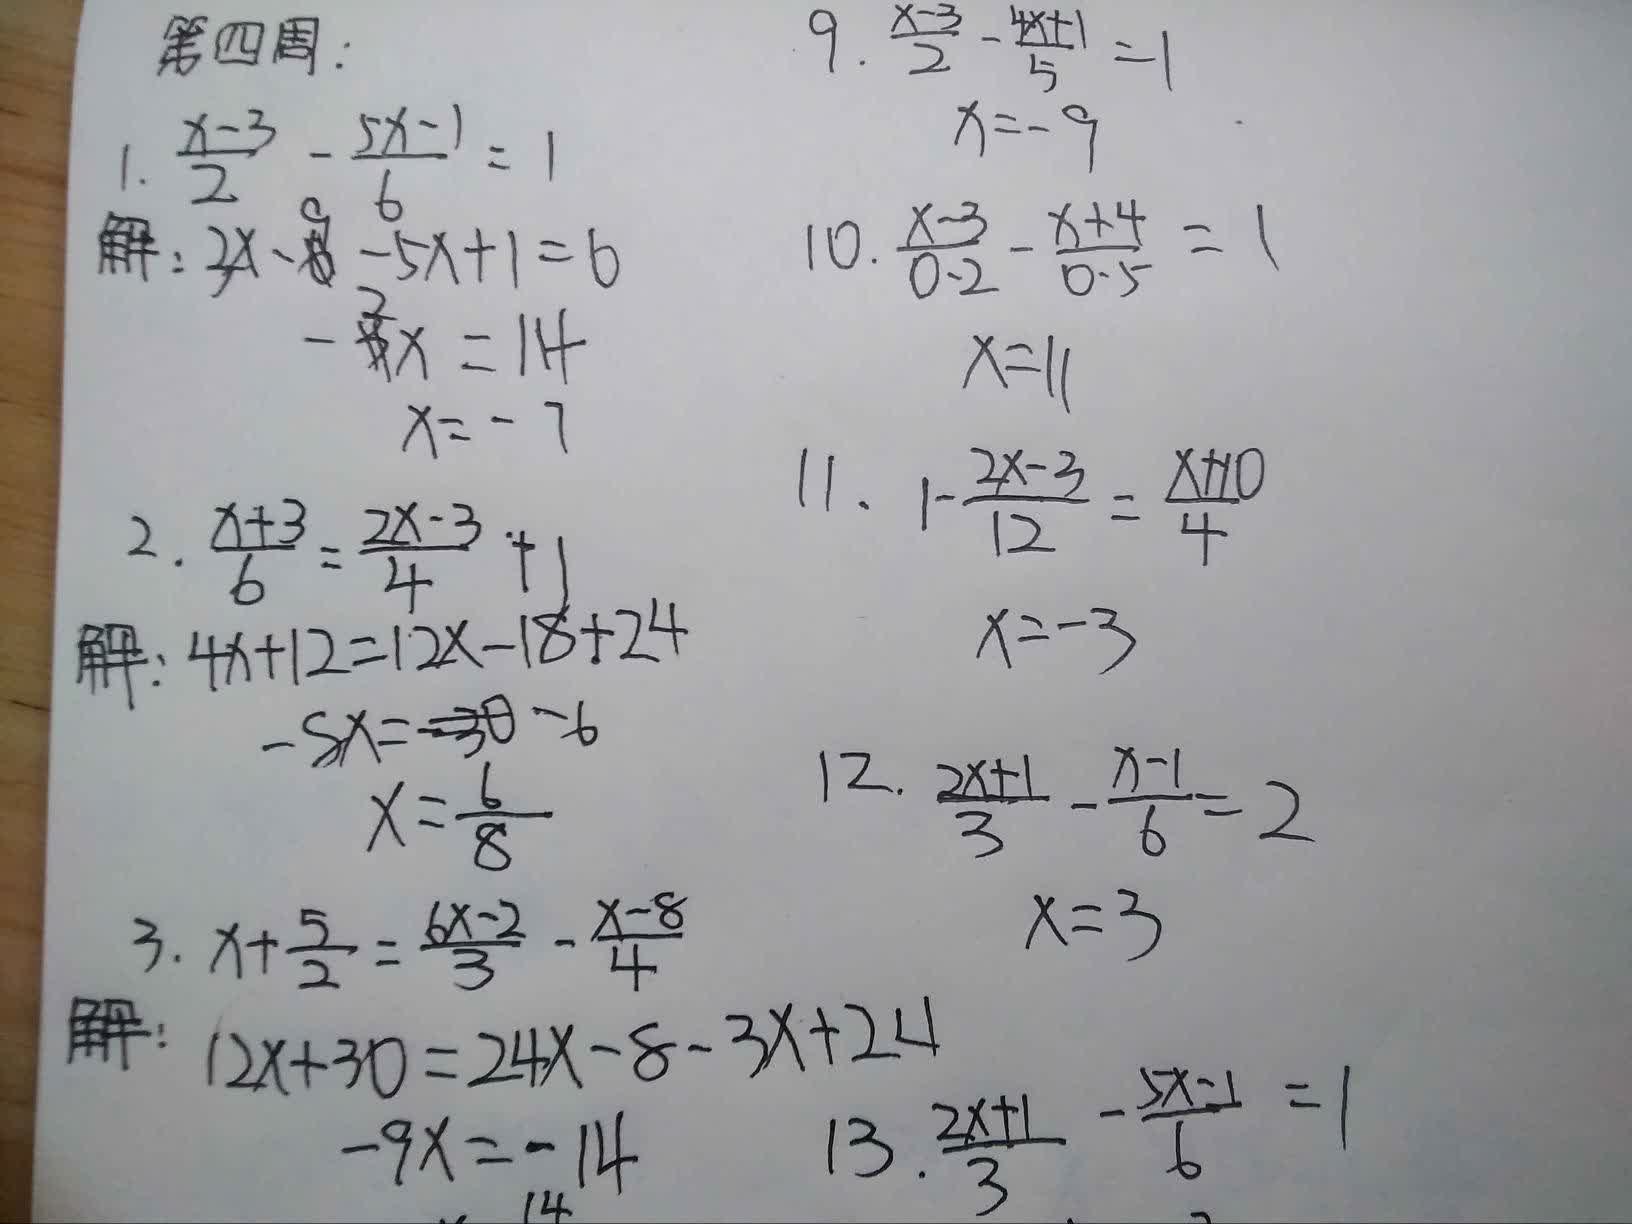 第四周:
1. \frac{x-3}{2} - \frac{5x-1}{6} = 1
解: 3x-9-5x+1=6
-2x=14
x=-7
2. \frac{x+3}{6} = \frac{2x-3}{4} +1
解: 4x+12=12x-18+24
-8x=-6
x=\frac{6}{8}
3. x+\frac{5}{2} = \frac{6x-2}{3} - \frac{x-8}{4}
解: 12x+30=24x-8-3x+24
-9x=-14
14
9. \frac{x-3}{2} - \frac{4x+1}{5} =1
x=-9
10. \frac{x-3}{0.2} - \frac{x+4}{0.5} = 1
x=11
11. 1-\frac{2x-3}{12} = \frac{x+10}{4}
x=-3
12. \frac{2x+1}{3} - \frac{x-1}{6} = 2
x=3
13. \frac{2x+1}{3} - \frac{5x-1}{6} =1